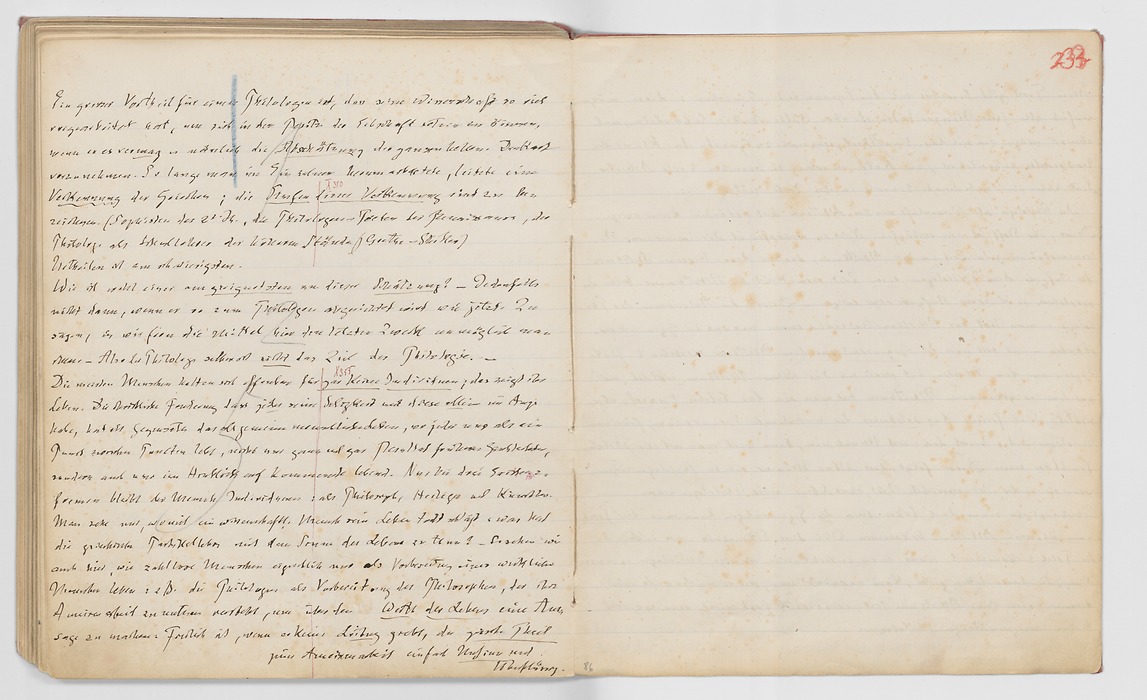 233
Ein grosser Vortheil für einen Philologen ist, dass seine Wissenschaft so viel
vorgearbeitet hat, um sich in den Besitz der Erbschaft setzen zu können,
wenn er es vermag – nämlich die Abschätzung der ganzen hellen. Denkart
vorzunehmen. So lange man im Einzelnen herumarbeitete, leitete eine
Verkennung der Griechen; die Stufen dieser Verkennung sind zu be-
zeichnen. (Sophisten des 2t Jh., die Philologen-Poeten der Renaissance, der
Philologe als Lehrer der höheren Stände (Goethe – Schiller)
Urtheilen ist am schwierigsten.
Wie ist wohl einer am geeignetsten zu dieser Schätzung? – Jedenfalls
nicht dann, wenn er so zum Philologen abgerichtet wird wie jetzt. Zu
sagen, in wiefern die Mittel hier den letzten Zweck unmöglich ma-
chen – Also der Philologe selbst ist nicht das Ziel der Philologie. –
X 355
Die meisten Menschen halten sich offenbar für gar keine Individuen; das zeigt ihr
Leben. Die christliche Forderung dass jeder seine Seligkeit und diese allein im Auge
habe, hat als Gegensatz das allgemeine menschliche Leben, wo jeder nur als ein
Punct zwischen Puncten lebt, nicht nur ganz und gar Resultat früherer Geschlechter,
sondern auch nur im Hinblick auf kommende lebend. Nur bei drei Existenz-
formen bleibt der Mensch Individuum: als Philosoph, Heiliger und Künstler.
Man sehe nur, womit ein wissenschaftl. Mensch sein Leben todt schlägt: was hat
die griechische Partikellehre mit dem Sinne des Lebens zu thun? – So sehen wir
auch hier, wie zahllose Menschen eigentlich nur als Vorbereitung eines wirklichen
Menschen leben: z.B. die Philologen als Vorbereitung des Philosophen, der ihre
Ameisenarbeit zu nutzen versteht, um über den Werth des Lebens eine Aus-
sage zu machen. Freilich ist, wenn es keine Leitung giebt, der grösste Theil
jener Ameisenarbeit einfach Unsinn und
überflüssig.
86